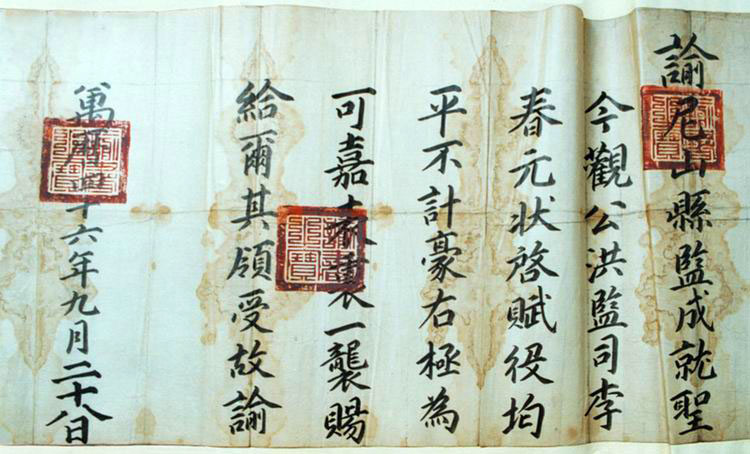 諭尼山縣監成就聖
今觀公洪監司李
春元状啓賦役均
平不計豪右極為
可嘉表裏一襲賜
給爾其領受故諭
萬曆四十六年九月二十八日